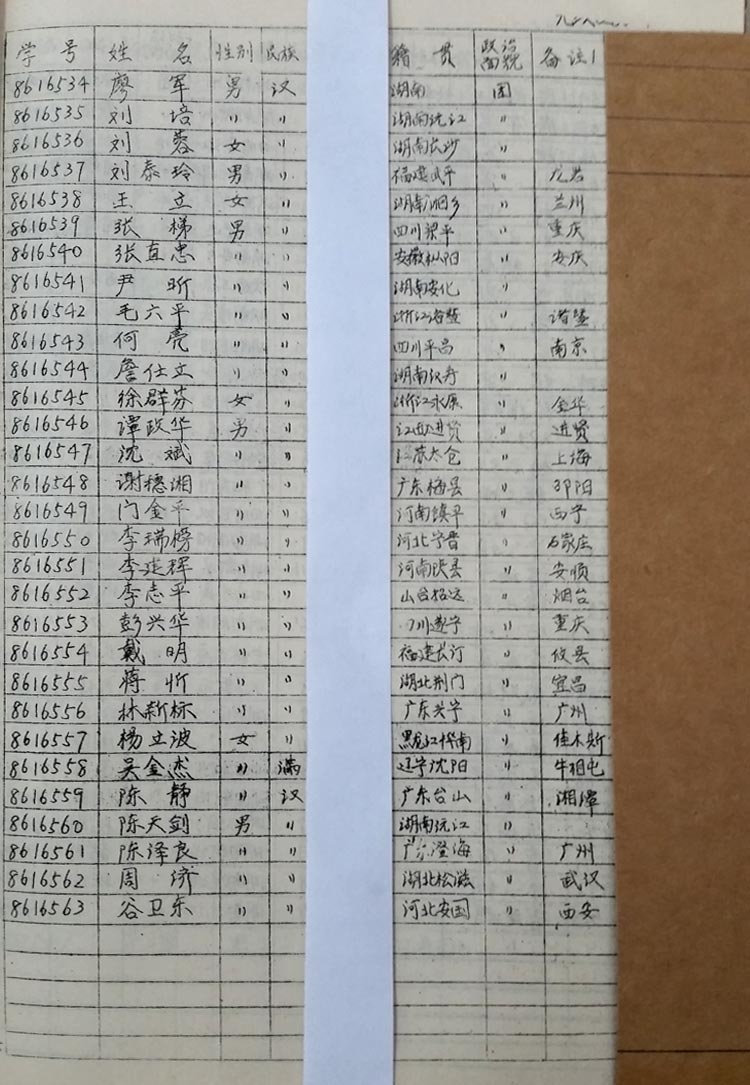 学号 姓名 性别 民族 籍贯 政治面貌 备注1
8616534 廖军 男 汉 湖南 团
8616535 刘培 〃 〃 湖南沅江 〃
8616536 刘蓉 女 〃 湖南长沙 〃
8616537 刘泰玲 男 〃 福建武平 〃 龙岩
8616538 王立 女 〃 湖南湘乡 〃 兰川
8616539 张梯 男 〃 四川梁平 〃 重庆
8616540 张直忠 〃 〃 安徽枞阳 〃 安庆
8616541 尹昕 〃 〃 湖南安化 〃
8616542 毛六平 〃 〃 浙江诸暨 〃 诸暨
8616543 何亮 〃 〃 四川平昌 〃 南京
8616544 詹仕立 〃 〃 湖南汉寿 〃
8616545 徐群芬 女 〃 浙江永康 〃 金华
8616546 谭政华 男 〃 江西进贤 〃 进贤
8616547 沈斌 〃 〃 江苏太仓 〃 上海
8616548 谢穗湘 〃 〃 广东梅县 〃 邵阳
8616549 门金平 〃 〃 河南镇平 〃 西宁
8616550 李瑞榜 〃 〃 河北宁晋 〃 石家庄
8616551 李延辉 〃 〃 河南陕县 〃 安顺
8616552 李志平 〃 〃 山东招远 〃 烟台
8616553 彭兴华 〃 〃 川遂宁 〃 重庆
8616554 戴明 〃 〃 福建长汀 〃 攸县
8616555 蒋忻 〃 〃 湖北荆门 〃 宜昌
8616556 林新标 〃 〃 广东兴宁 〃 广州
8616557 杨立波 女 〃 黑龙江桦南 〃 佳木斯
8616558 吴金杰 〃 满 辽宁沈阳 〃 牛相屯
8616559 陈静 〃 汉 广东台山 〃 湘潭
8616560 陈天剑 男 〃 湖南沅江 〃
8616561 陈泽良 〃 〃 广东澄海 〃 广州
8616562 周济 〃 〃 湖北松滋 〃 武汉
8616563 谷卫东 〃 〃 河北安国 〃 西安